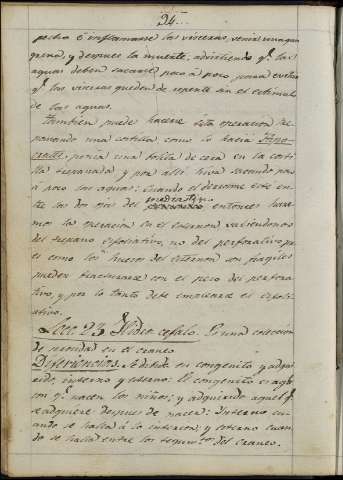 24..
pecho ó inflamarse las visceras, venir una gan
grena, y despues la muerte, advirtiendo q.e las
aguas deben sacarse poco á poco para evitar
q.e las visceras queden de repente sin el estimul
de las aguas.
Tambien puede hacerse esta operacion tre
panando una costilla como lo hacia Hipo
crates, ponia una bolita de cera en la costi
lla trepanada y por alli hiva sacando poco
á poco las aguas: Cuando el derrame esté en
tre las dos ojas del mediastino entonces hare
mos la operacion en el esternon valiendonos
del trepano esfoliativo, no del perforativo pu
es como los huesos del esternon son fragiles
pueden fracturarse con el peso del perfora
tivo, y por lo tanto debe emplearse el esfoli
ativo.
Lecc. 23. Hidro cefalo. Es una coleccion
de serosidad en el craneo
Diferiencias. Se divide en congenito y adqui
rido, interno y esterno: El congenito es aqu
con q.e nacen los niños; y adquirido aquel q.e
se adquiere despues de nacer: Interno cu
ando se halla á lo interior; y esterno cuan
do se halla entre los tegum.tos del craneo.